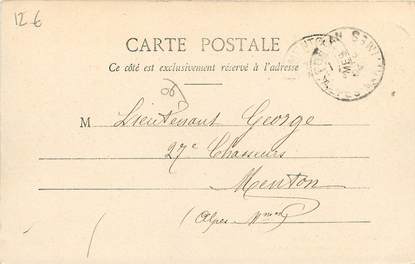 12 €
CARTE POSTALE
Ce côté est exclusivement réservé à l'adresse
06
M Lieutenant George
27e Chasseurs
Menton
(Alpes Mmes)